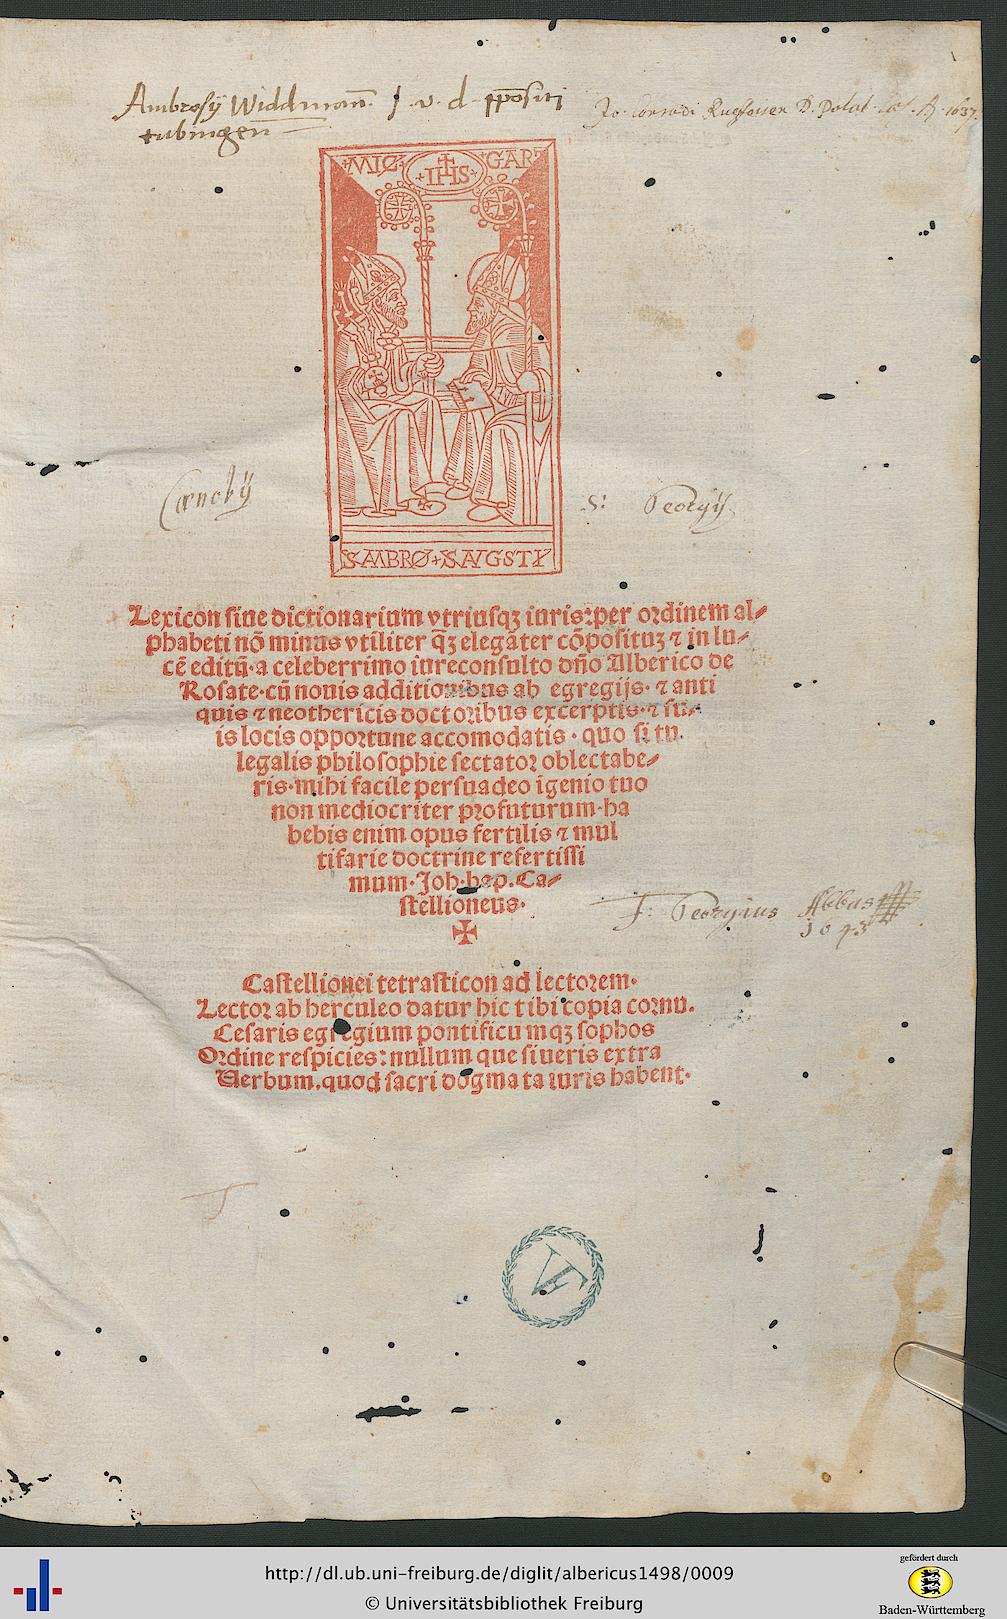 Ambrosÿ Widdman̄. J. v. d. p̄positi
tubingen
+MIÇ+ +IHS+ GAR
Cœnobÿ S: Georgÿ.
S AMBRØ+S AVGSTI
Lexicon siue dictionarium vtriusqꝫ iuris: per ordinem al⸗
phabeti nō minus vtiliter q̄ꝫ elegāter cōposituꝫ ⁊ in lu⸗
cē editū·a celeberrimo iureconsulto dn̄o Alberico de
Rosate·cū nouis additionibus ab egregijs·⁊ anti
quis ⁊ neothericis doctoribus excerptis·⁊ su⸗
is locis opportune accomodatis·quo si tu
legalis philosophie sectator oblectabe⸗
ris·mihi facile persuadeo īgenio tuo
non mediocriter profuturum·ha
bebis enim opus fertilis ⁊ mul
tifarie doctrine refertissi
mum·Joh·bap.Ca⸗
stellioneus·
F: Georgius Abbas
1643
Castellionei tetrasticon ad lectorem·
Lector ab herculeo datur hic tibi copia cornu.
Cesaris egregium pontificumqꝫ sophos
Ordine respicies: nullum que siueris extra
Uerbum.quod sacri dogmata iuris habent·
http://dl.ub.uni-freiburg.de/diglit/albericus1498/0009
© Universitätsbibliothek Freiburg
gefördert durch
Baden-Württemberg